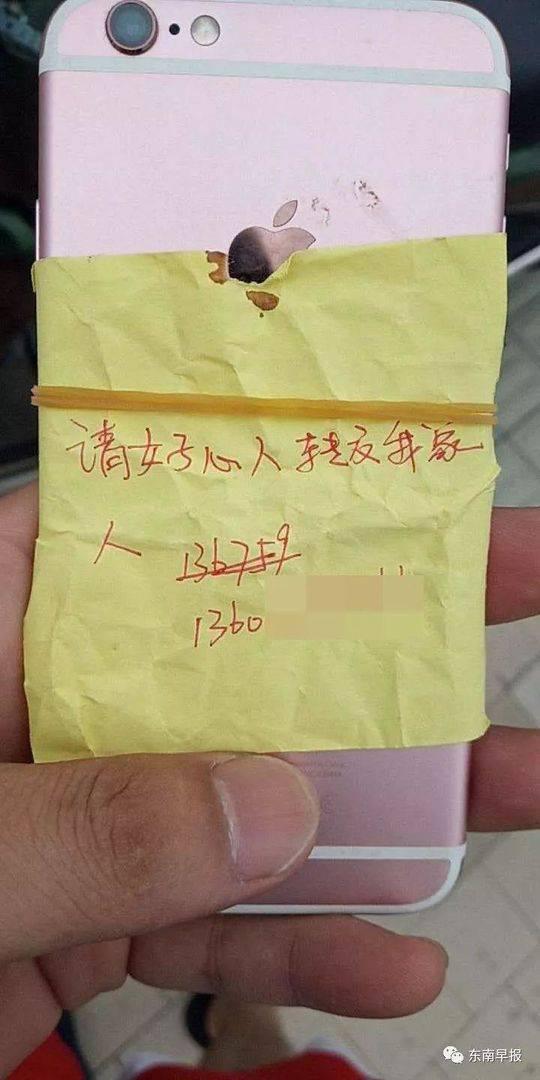 请好心人转交我家
人
136759
1360
东南早报